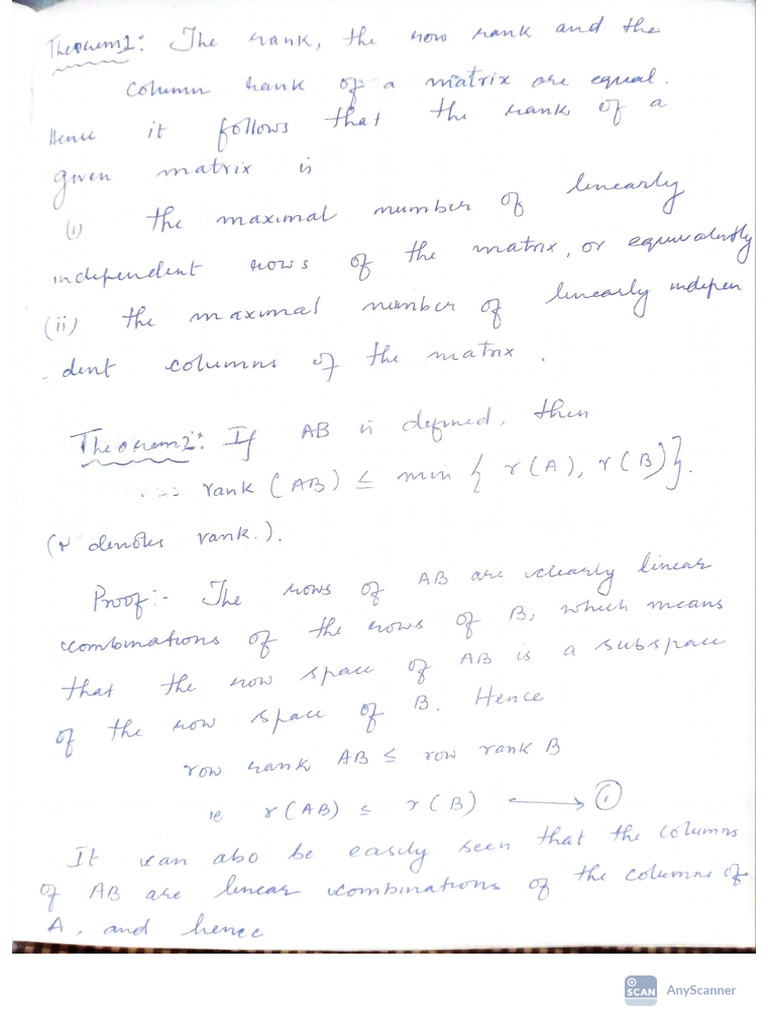 Theorem1: The rank, the row rank and the
column rank of a matrix are equal.
Hence it follows that the rank of a
given matrix is
(i) the maximal number of linearly
independent rows of the matrix, or equivalently
(ii) the maximal number of linearly indepen
-dent columns of the matrix.
Theorem2: If AB is defined, then
rank (AB) ≤ min { r(A), r(B)}.
(r denotes rank.).
Proof:- The rows of AB are clearly linear
combinations of the rows of B, which means
that the row space of AB is a subspace
of the row space of B. Hence
row rank AB ≤ row rank B
ie r(AB) ≤ r(B) ⟶ ①
It can also be easily seen that the columns
of AB are linear combinations of the columns of
A, and hence
SCAN AnyScanner